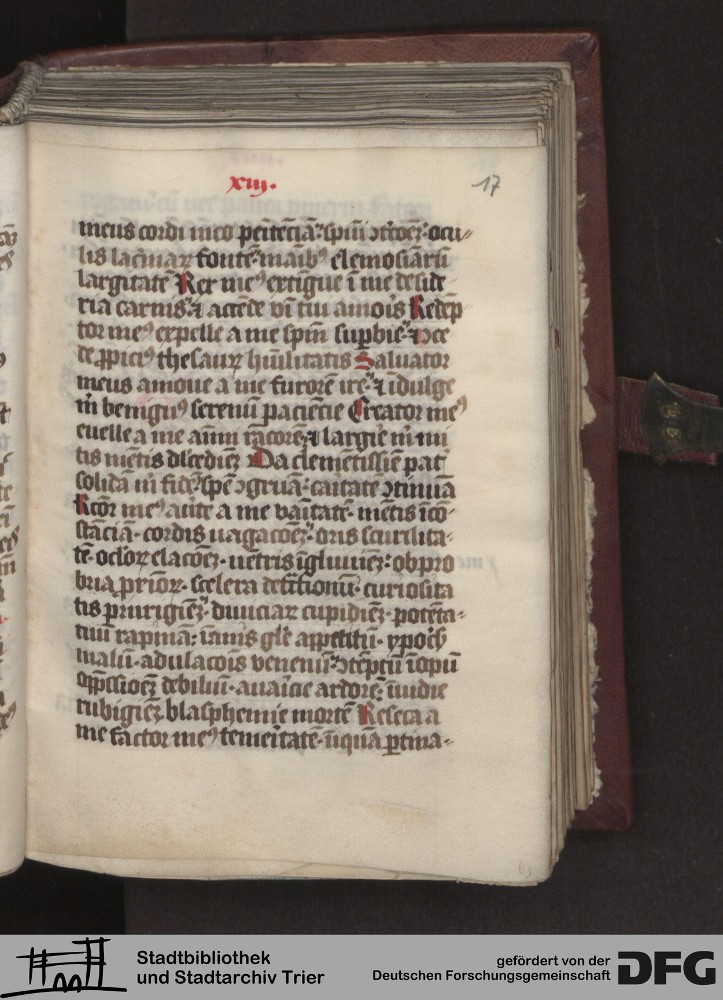 xiij.
17
meus cordi meo penitēciā. spūi ↄtⁱtōeȝ. ocu-
lis lacⁱmaꝝ fonte. maībꝰ elemosiāꝝ
largitatē Rex meꝰ extigue ī me deside
ria carnis. ⁊ accēde ignē tui amoⁱs Redēp
tor meꝰ expelle a me spm̄ suꝑbie. ⁊
thesauꝝ hūilitatis Saluator
meus amoue a me furorē ire. ⁊ īdulge
m̄ benignꝰ paciēcie Creator meꝰ
euelle a me aīmi rācorē. ⁊ largire m̄ mi
tis mētis dlcediēȝ Da clemētissīe pat̄
solidā m̄ fidē. spē ↄgruā. caⁱtatē ↄtinuā
Rcōr meꝰ au̓te a me vaⁱtatē. mētis īcō
stāciā. cordis uagacōeȝ. oris scurilita-
tē. ocloꝝ elacōeȝ. uētris īgluuiēȝ. obpro
bria ꝓxīoꝝ. scelera detctionū. curiosita
tis pruriginēȝ. diuiciaꝝ cupidiēȝ. potēta-
tuū rapinā. īanis glⁱe appetitū. ypoc̄
malū. adulacōis venenū. ↄtēptū īopū
oppssioēȝ debiliū. auaⁱcie ardorē. īuidie
rubigiēȝ blasphemie mortē Reseca a
me factor meꝰ temeⁱtatē. ꝑtina-
63
Stadtbibliothek
und Stadtarchiv Trier
gefördert von der
Deutschen Forschungsgemeinschaft
DFG